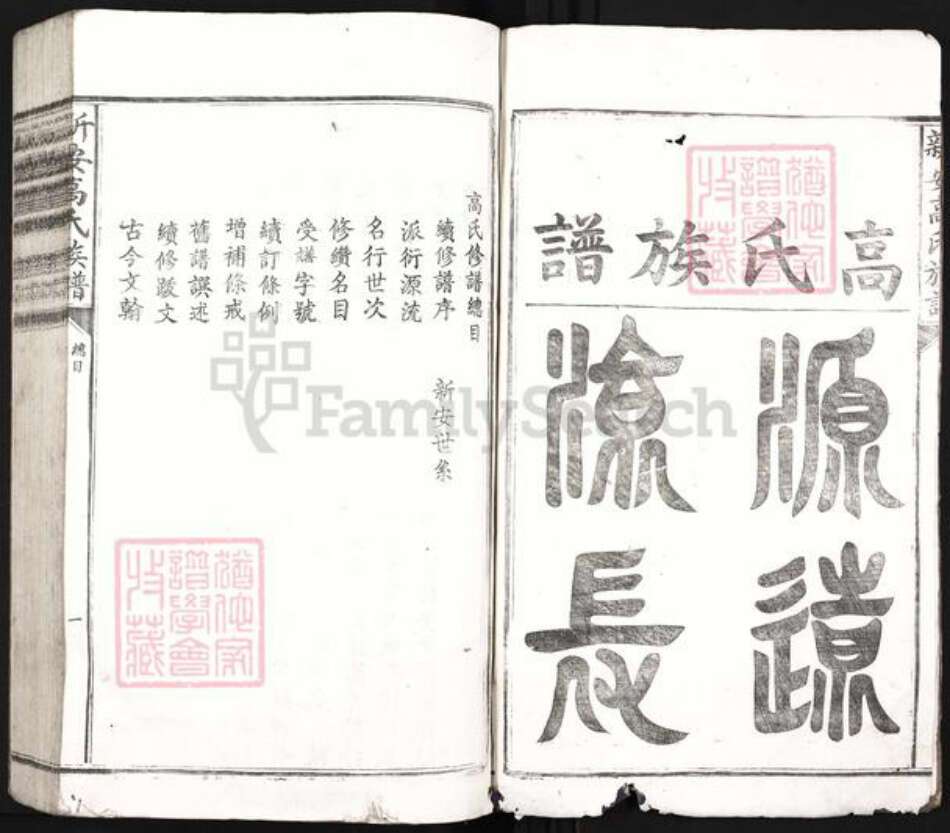 新安高氏族譜
高氏族譜
源遠
流長
高氏修譜總目
續修譜序 新安世系
派衍源流
名行世次
修纘名目
受譜字號
續訂條例
增補條戒
舊譜譔述
續修跋文
古今文翰
新安高氏族譜
總目
一
FamilySearch